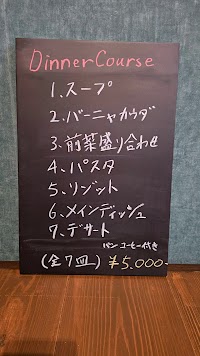 Dinner Course
1、スープ
2、バーニャカウダ
3、前菜盛り合わせ
4、パスタ
5、リゾット
6、メインディッシュ
7、デザート
パン コーヒー付き
(全7皿) ¥5,000-